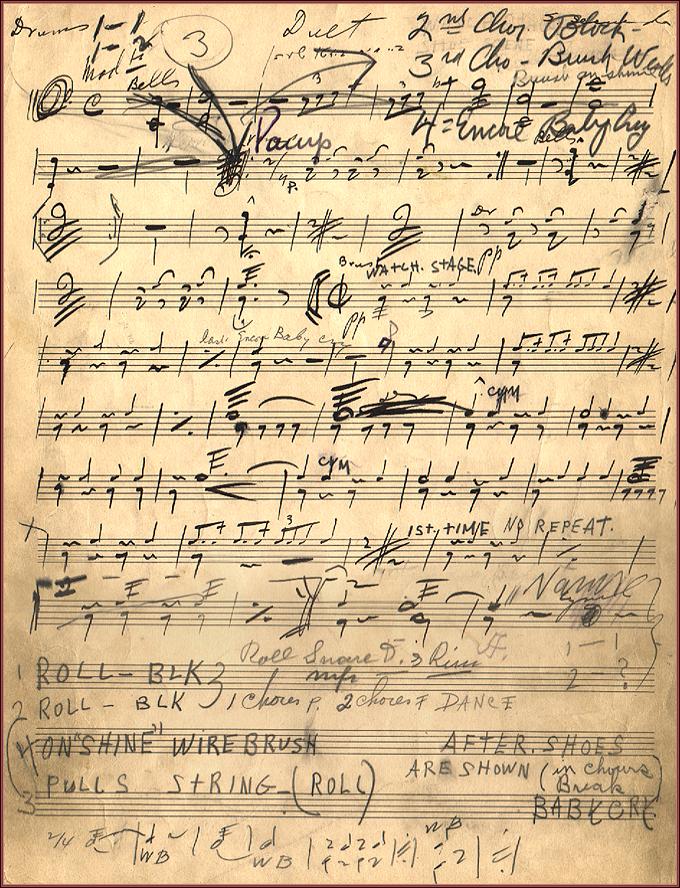 Drums 1-1 Duet 2nd Chor Block-
1-2
3
3rd Cho - Brush Works
Bells
Brush on shine
4 = Encore Baby Cry
Pacup
Bells
Brus WATCH. STAGE. pp
last Encor Baby cry pp
CYM
CYM
1ST. TIME NO REPEAT.
Roll Snare D. 3 Rim
1 ROLL - BLK
2 ROLL - BLK 1 Chorus P. 2 Chorus F DANCE
4 ON "SHINE" WIRE BRUSH AFTER. SHOES
ARE SHOWN (in chours
3 PULLS STRING - (ROLL) Break
BABY CRY
2/4 WB WB WB